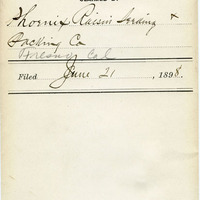 Phoenix Raisin Seeding &
Packing Co
Fresno Cal
Filed June 21, 1898.